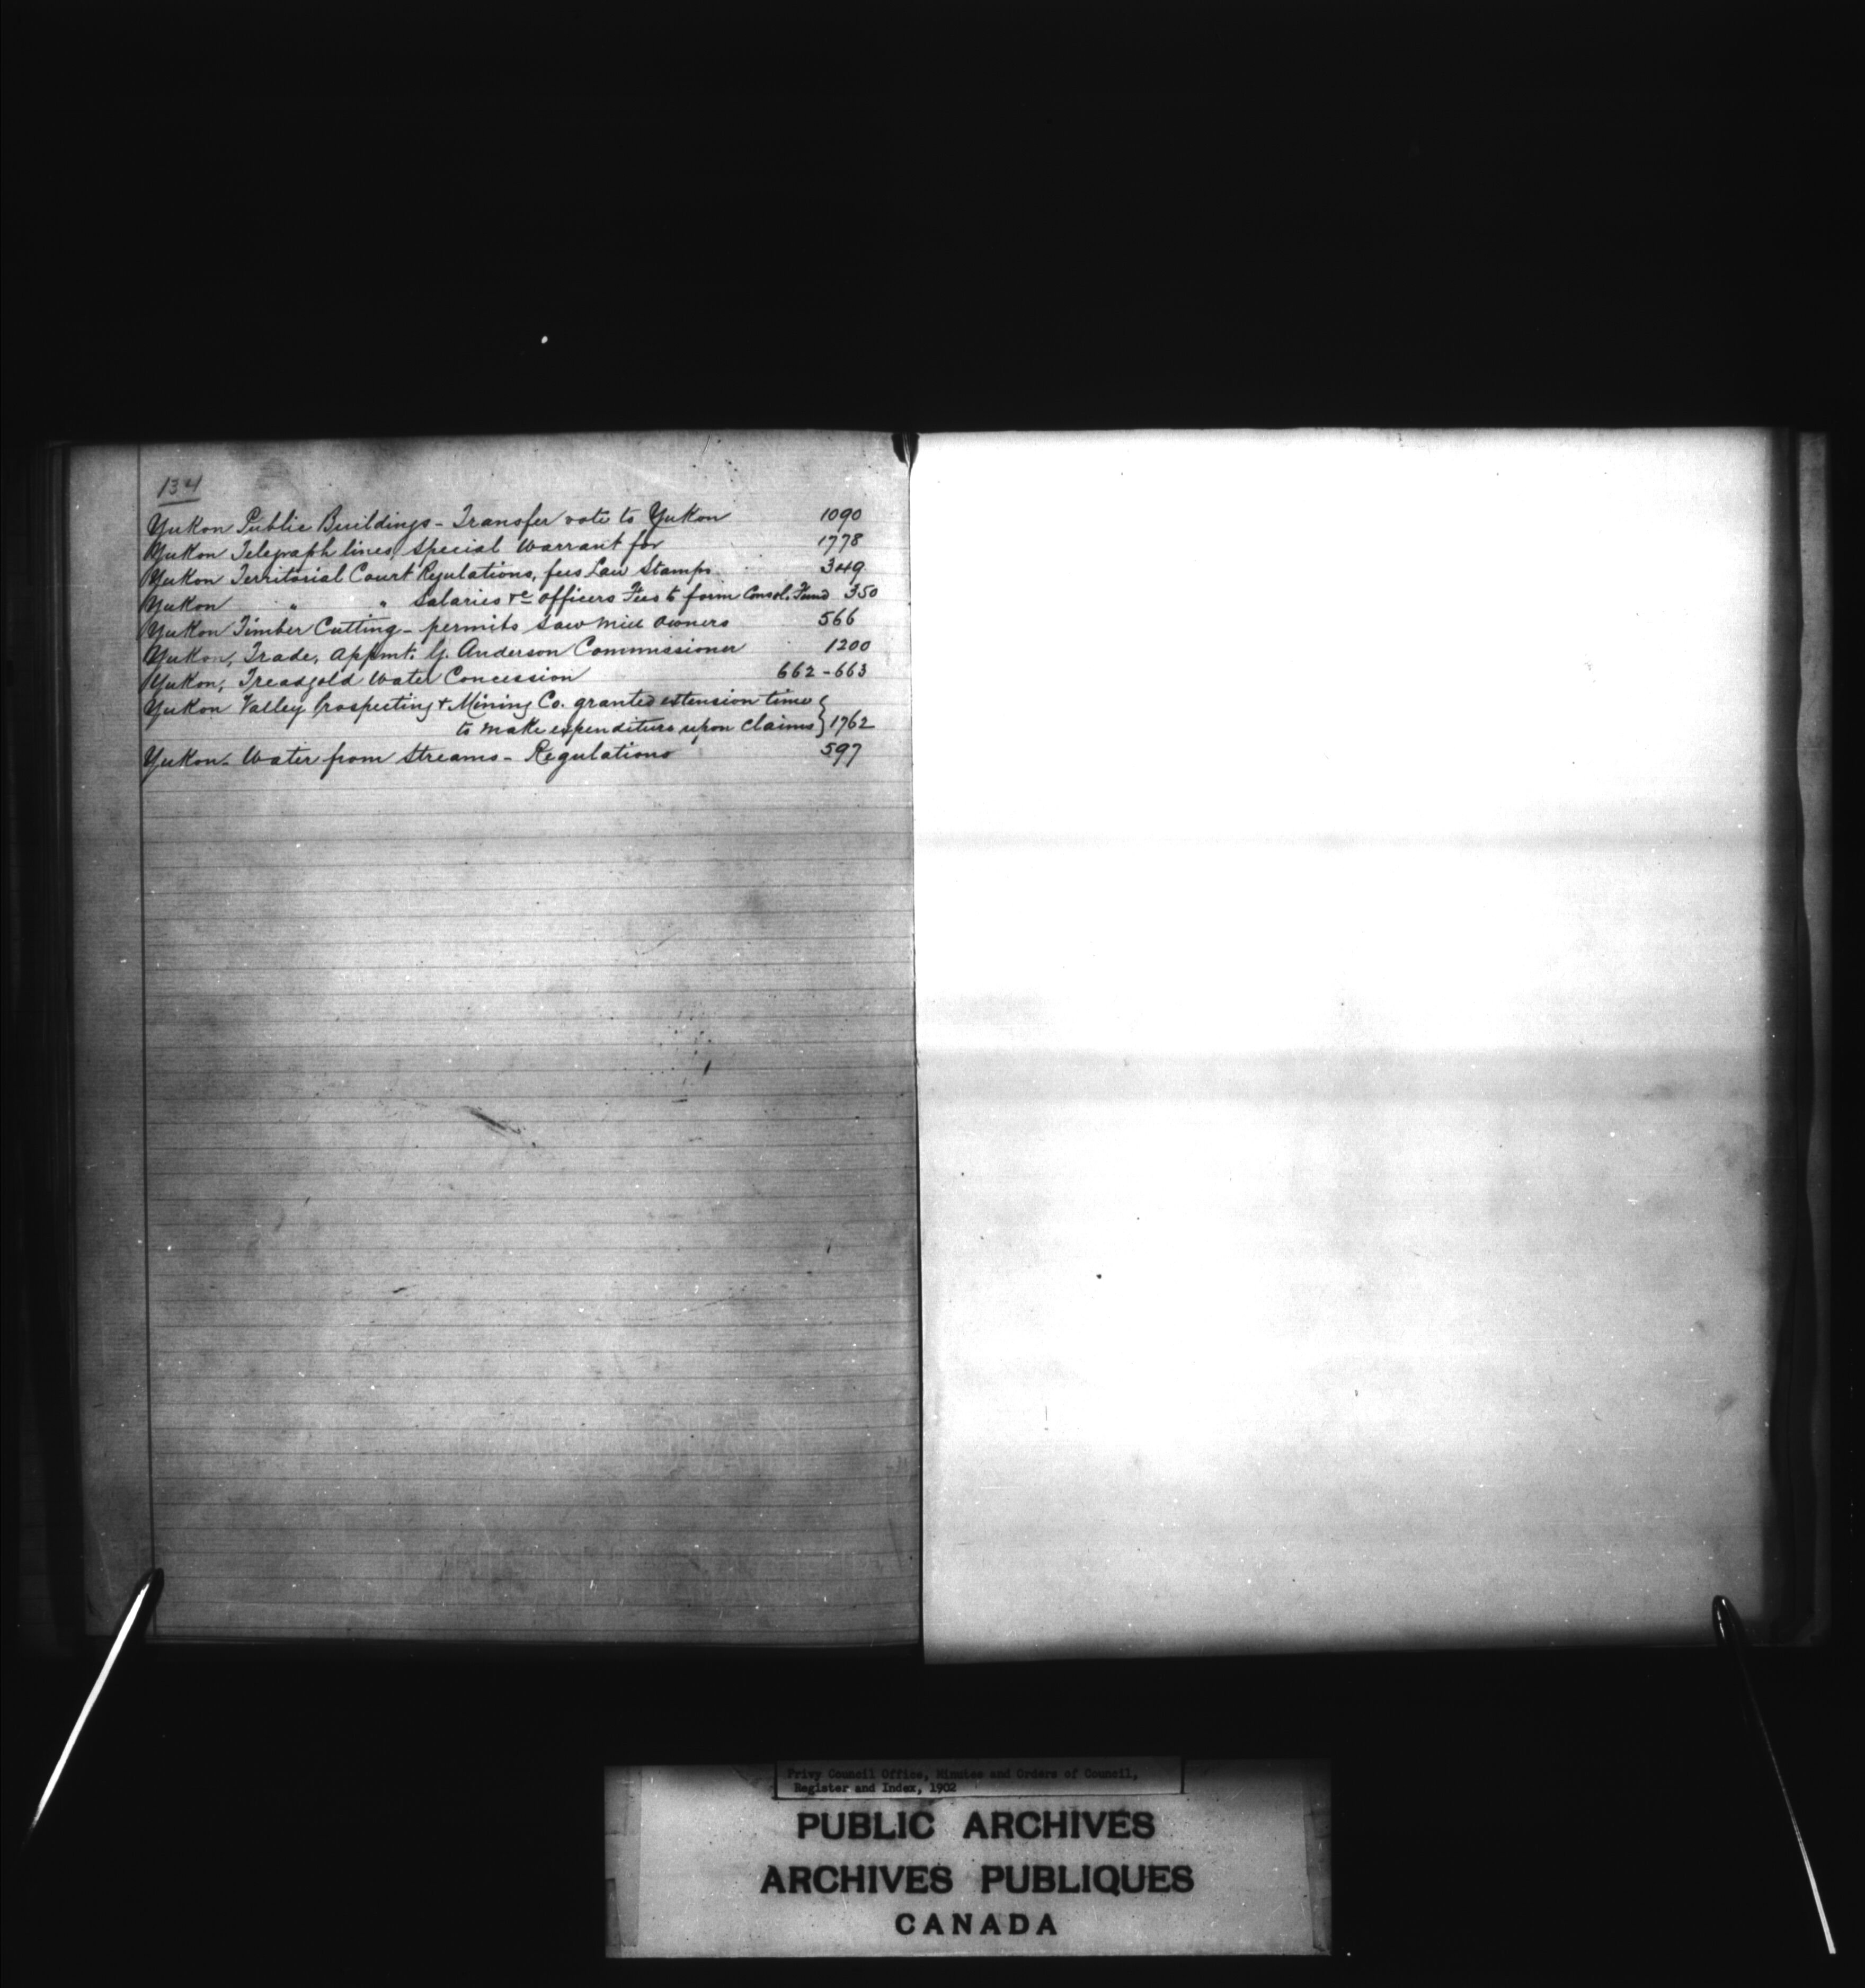 134
Yukon Public Buildings - Transfer vote to Yukon 1090
Yukon Telegraph lines, Special Warrant for 1778
Yukon Territorial Court Regulations, fees Law Stamps 349
Yukon " " Salaries &c officers Fees to form Consol. Fund 350
Yukon Timber Cutting - permits Saw Mill Owners 566
Yukon, Trade, Appmt. G. Anderson Commissioner 1200
Yukon, Treadgold Water Concession 662-663
Yukon Valley Prospecting & Mining Co. granted extension time
to make expenditure upon claims } 1762
Yukon - Water from Streams - Regulations 597
Privy Council Office, Minutes and Orders of Council,
Register and Index, 1902
PUBLIC ARCHIVES
ARCHIVES PUBLIQUES
CANADA